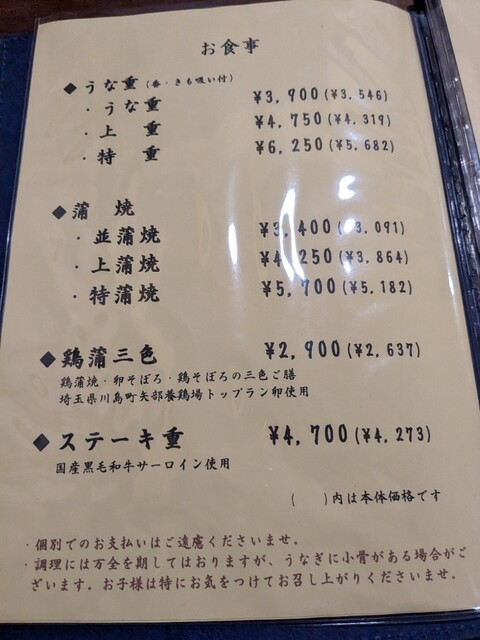 お食事
◆うな重(香・きも吸い付)
・うな重 ¥3,900(¥3,546)
・上 重 ¥4,750(¥4,319)
・特 重 ¥6,250(¥5,682)
◆蒲 焼
・並蒲焼 ¥3,400(¥3,091)
・上蒲焼 ¥4,250(¥3,864)
・特蒲焼 ¥5,700(¥5,182)
◆鶏蒲三色 ¥2,900(¥2,637)
鶏蒲焼・卵そぼろ・鶏そぼろの三色ご膳
埼玉県川島町矢部養鶏場トップラン卵使用
◆ステーキ重 ¥4,700(¥4,273)
国産黒毛和牛サーロイン使用
( )内は本体価格です
・個別でのお支払いはご遠慮くださいませ。
・調理には万全を期してはおりますが、うなぎに小骨がある場合がご
ざいます。お子様は特にお気をつけてお召し上がりくださいませ。